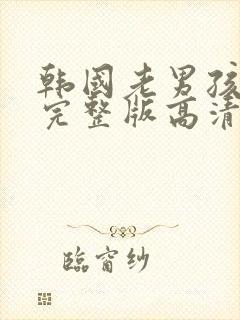 韩国老男孩
完整版高清
臨窗纱